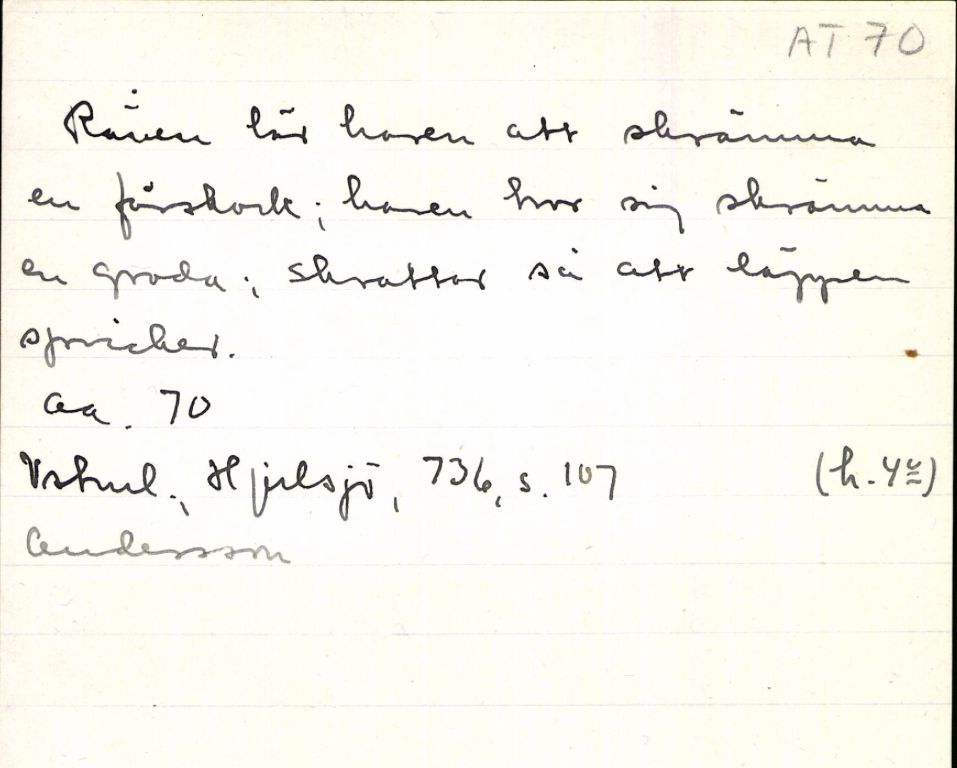 AT 70
Räven lär haren att skrämma
en fårskock; haren tror sig skrämma
en groda; skrattar så att läppen
spricker.
Aa. 70
Västral., Hjelsjö, 736, s. 107 (h. 42)
Andersson